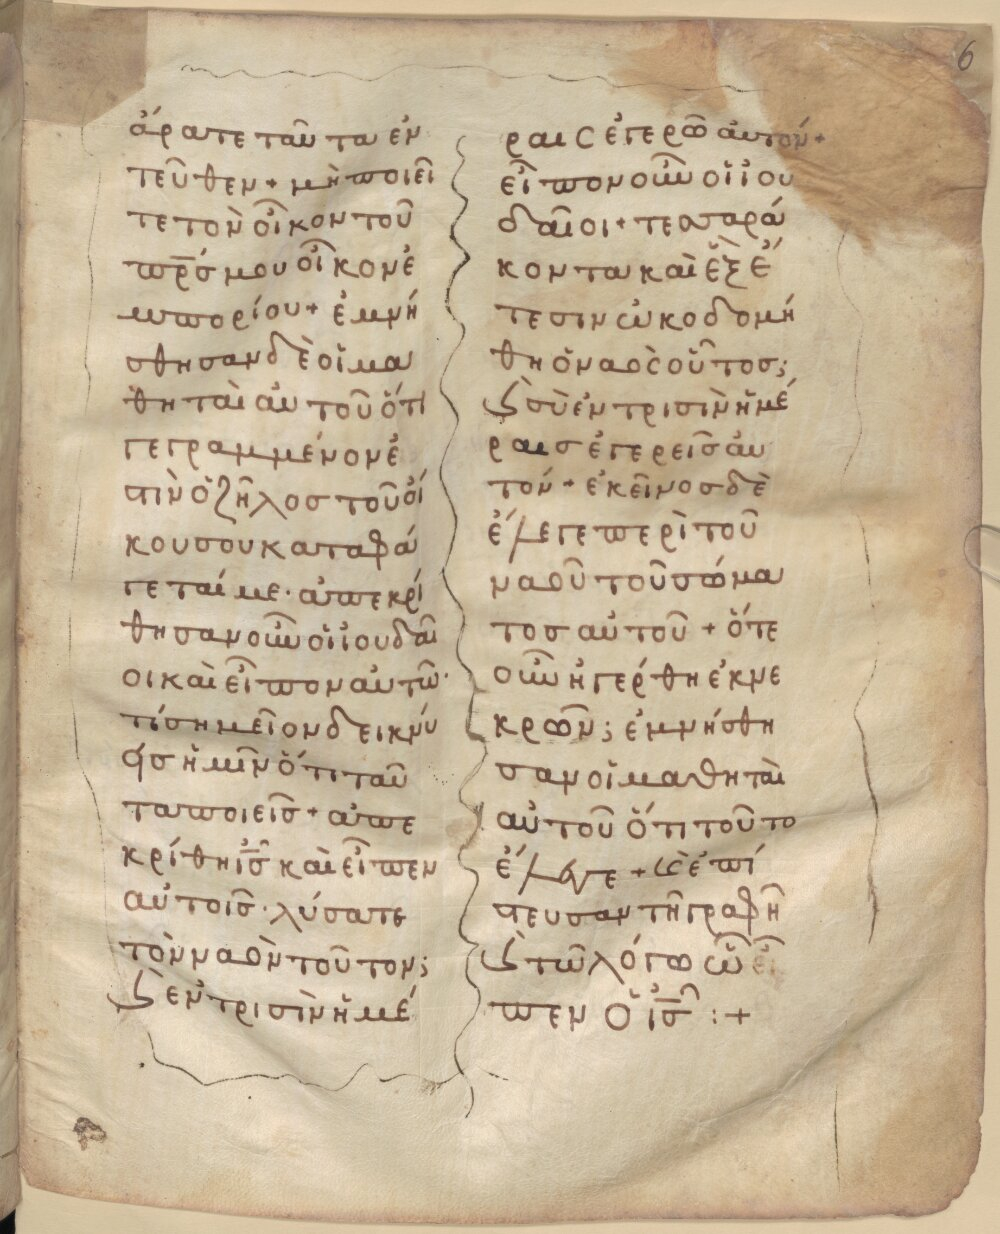 6
ἄρατε ταῦτα ἐν
τεῦθεν + μὴ ποιεῖ
τε τὸν οἶκον τοῦ
πρ̅ς μου οἶκον ἐ
μπορίου + ἐμνή
σθησαν δὲ οἱ μα
θηταὶ αὐτοῦ ὅτι
γεγραμμένον ἐ
στὶν ὁ ζῆλος τοῦ οἴ
κου σου καταφά
γεταί με · ἀπεκρί
θησαν οὖν οἱ ἰουδαῖ
οι καὶ εἶπον αὐτῶ ·
τί σημεῖον δεικνύ
εις ἡμῖν ὅτι ταῦ
τα ποιεῖς + ἀπε
κρίθη ἰ̅ς̅ καὶ εἶπεν
αὐτοῖς · λύσατε
τὸν ναὸν τοῦτον ;
ϗ ἐν τρισὶν ἡμέ
ραις ἐγερῶ αὐτόν +
εἶπον οὖν οἱ ἰου
δαῖοι + τεσσαρά
κοντα καὶ ἓξ ἔ
τεσιν ὠκοδομή
θη ὁ ναὸς οὗτος ;
ϗ σὺ ἐν τρισὶν ἡμέ
ραις ἐγερεῖς αὐ
τόν + ἐκεῖνος δὲ
ἔλεγε περὶ τοῦ
ναοῦ τοῦ σώμα
τος αὐτοῦ + ὅτε
οὖν ἠγέρθη ἐκ νε
κρῶν ; ἐμνήσθη
σαν οἱ μαθηταὶ
αὐτοῦ ὅτι τοῦτο
ἔλεγε + ϗ ἐπί
στευσαν τῆ γραφῆ
ϗ τῶ λόγω ὧ εἶ
πεν ὁ ἰ̅ς̅ : +